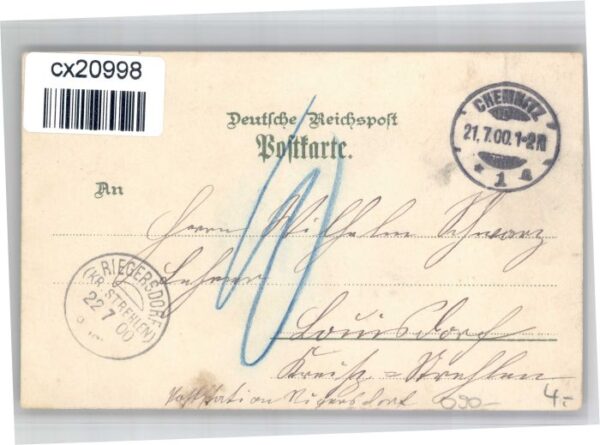 cx20998
Deutsche Reichspost
Postkarte.
CHEMNITZ
21.7.00.1-2N
* 1 a
An
Herrn Wilhelm Schwarz
Lehrer
Louisdorf
Kreis = Strehlen
Poststation Rigersdorf
RIEGERSDORF
(KR. STREHLEN)
22 7 00
4.-